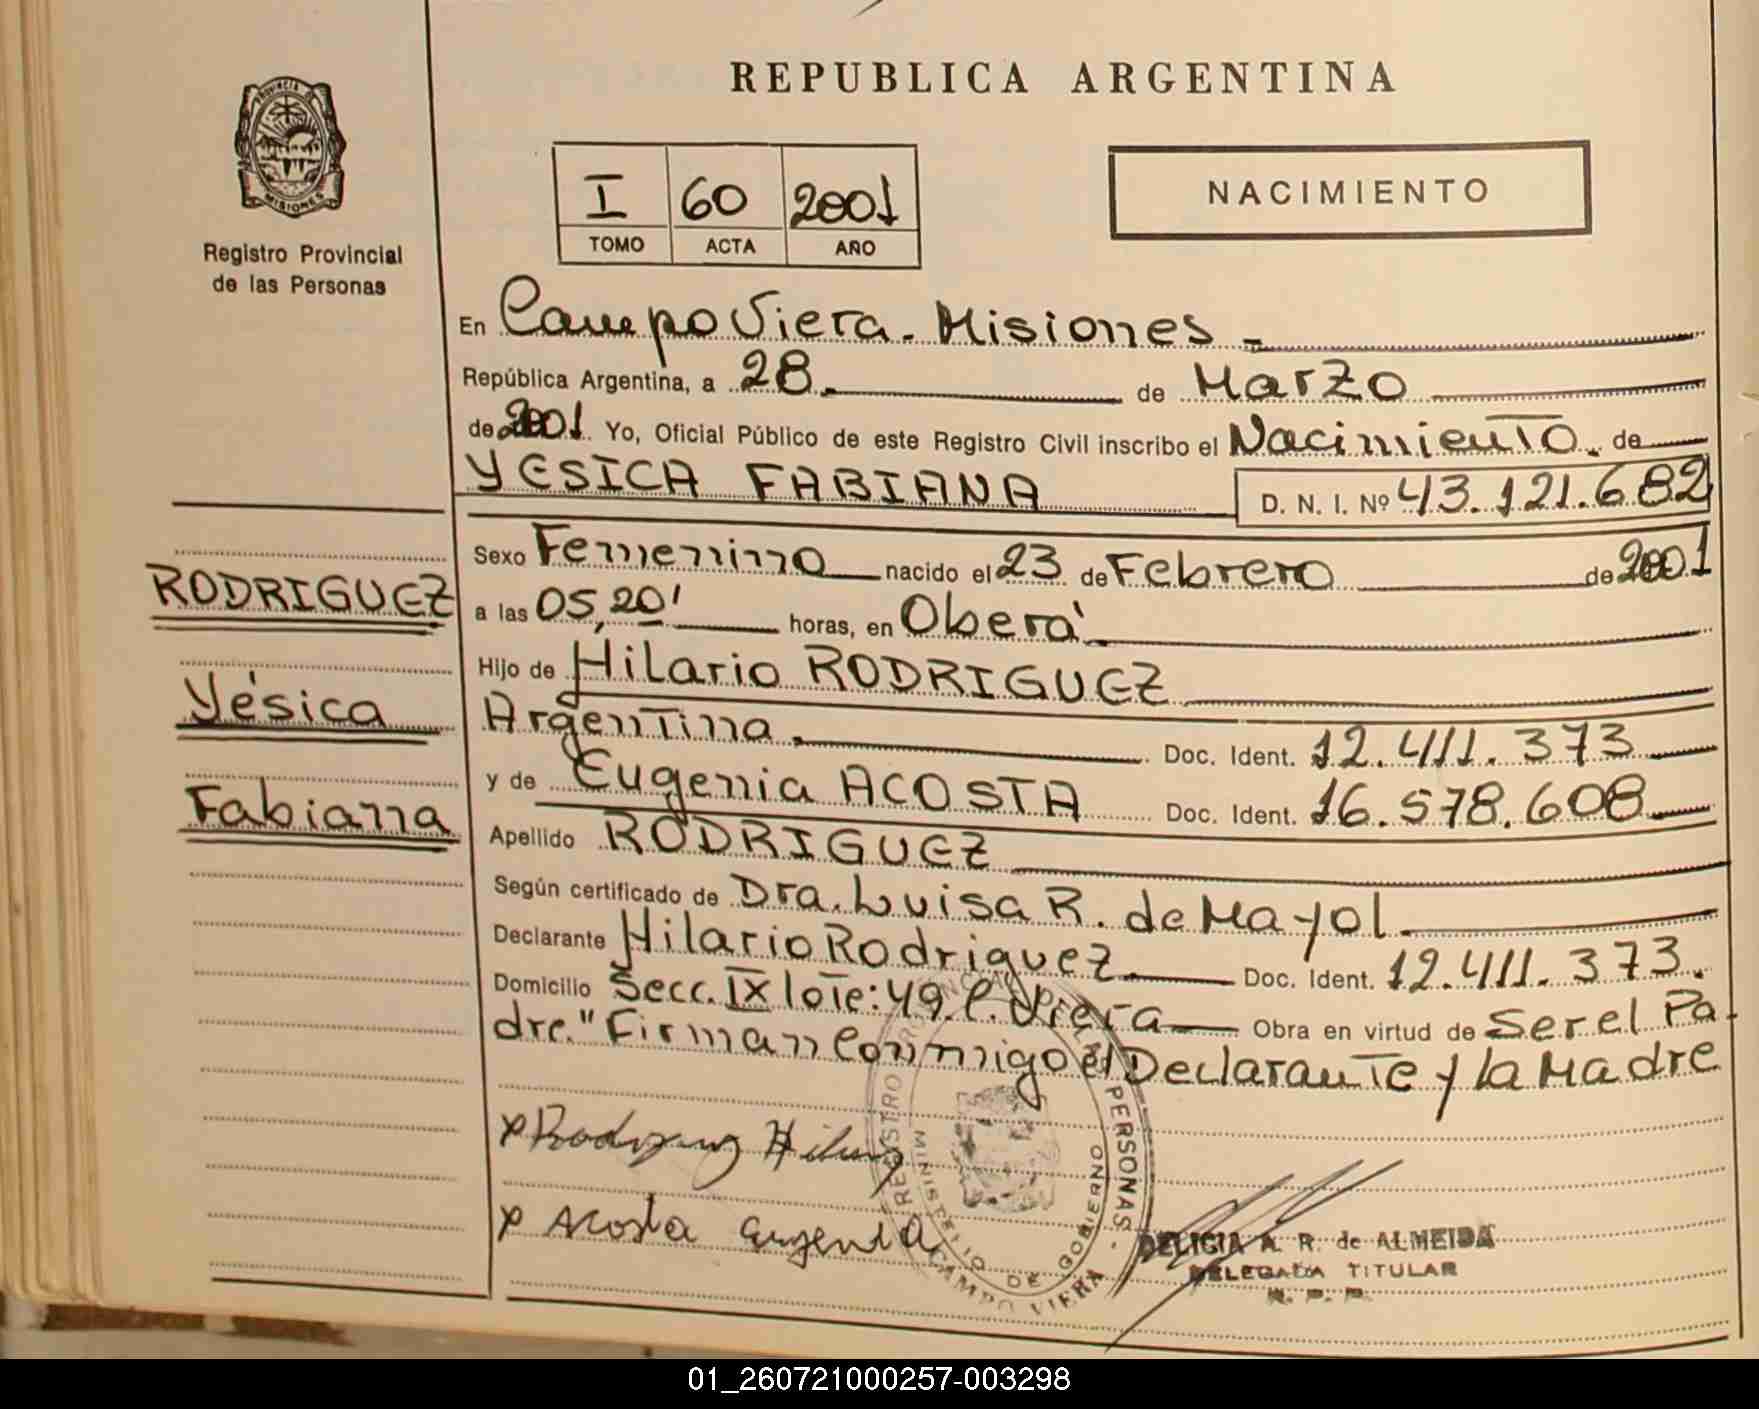 REPUBLICA ARGENTINA
PROVINCIA DE
MISIONES
Registro Provincial
de las Personas
I 60 2001
TOMO ACTA AÑO
NACIMIENTO
En Campo Viera - Misiones -
República Argentina, a 28. de Marzo
de 2001 Yo, Oficial Público de este Registro Civil inscribo el Nacimiento. de
YESICA FABIANA D. N. I. Nº 43.121.682
Sexo Femenino nacido el 23 de Febrero de 2001
a las 05,20' horas, en Oberá
Hijo de Hilario RODRIGUEZ
Argentina. Doc. Ident. 12.411.373
y de Eugenia ACOSTA Doc. Ident. 16.578.608
Apellido RODRIGUEZ
Según certificado de Dra. Luisa R. de Mayol
Declarante Hilario Rodriguez Doc. Ident. 12.411.373.
Domicilio Secc. IX lote: 49. C. Viera Obra en virtud de Ser el Pa-
dre." Firman Conmigo el Declarante y la Madre
RODRIGUEZ
Yésica
Fabiana
x Rodriguez Hilario
x Acosta Eugenia
REGISTRO PROVINCIAL DE LAS PERSONAS -
MINISTERIO DE GOBIERNO
CAMPO VIERA
DELICIA A. R. de ALMEIDA
DELEGADA TITULAR
R. P. P.
01_260721000257-003298